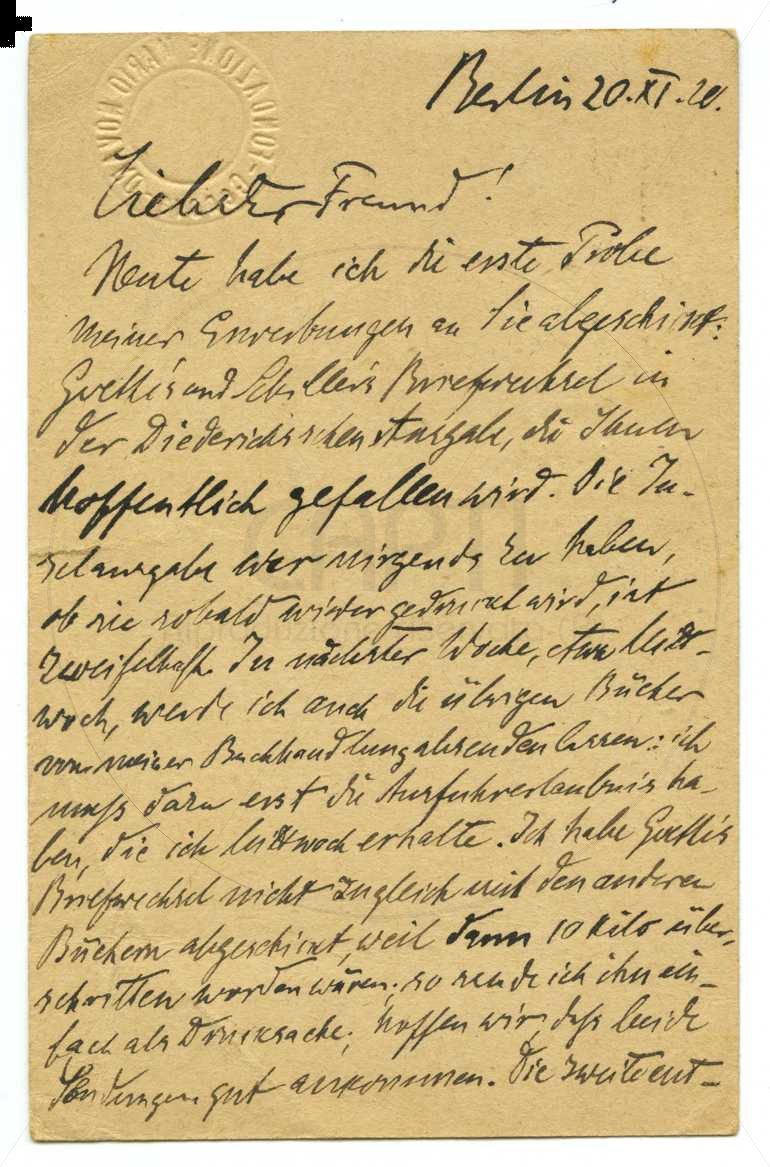 Berlin 20.XI.20.
Lieber Freund!
Heute habe ich die erste Probe
meiner Erwerbungen an Sie abgeschickt:
Goethes und Schillers Briefwechsel in
der Diederichsschen Ausgabe, die Ihnen
hoffentlich gefallen wird. Die In-
selausgabe war nirgends zu haben,
ob sie sobald wieder gedruckt wird, ist
zweifelhaft. In nächster Woche, etwa Mitt-
woch, werde ich auch die übrigen Bücher
von meiner Buchhandlung absenden lassen: ich
muß dazu erst die Ausfuhrerlaubnis ha-
ben, die ich Mittwoch erhalte. Ich habe Goethes
Briefwechsel nicht zugleich mit den anderen
Büchern abgeschickt, weil dann 10 Kilo über-
schritten worden wären; so sende ich ihn ein-
fach als Drucksache; hoffen wir, daß beide
Sendungen gut ankommen. Die zweite ent-